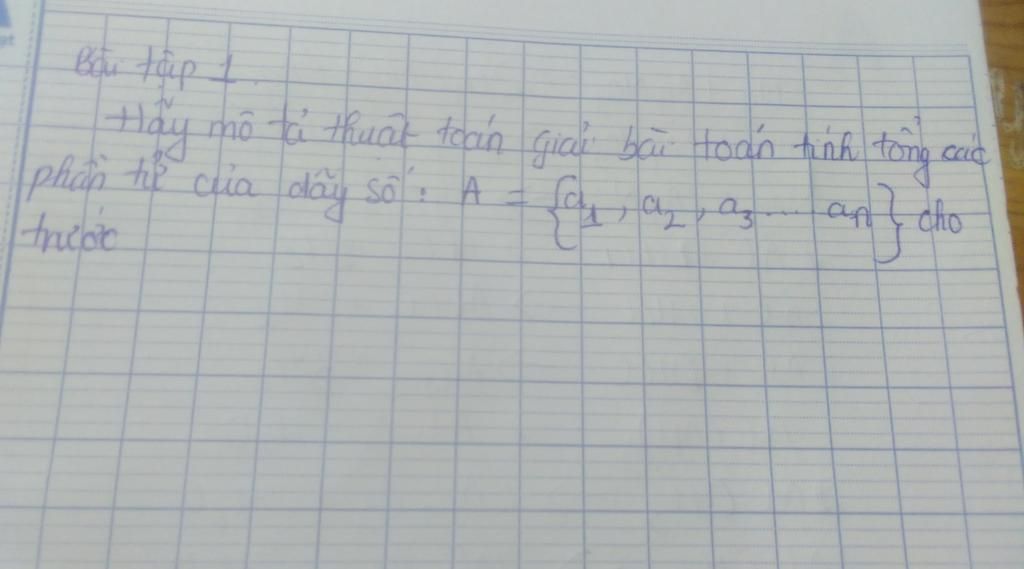 Bài tập 1.
Hẫy mô tả thuật toán giải bài toán tính tổng các
phần tử của dãy số: A = {a1, a2, a3 ... an} cho
trước